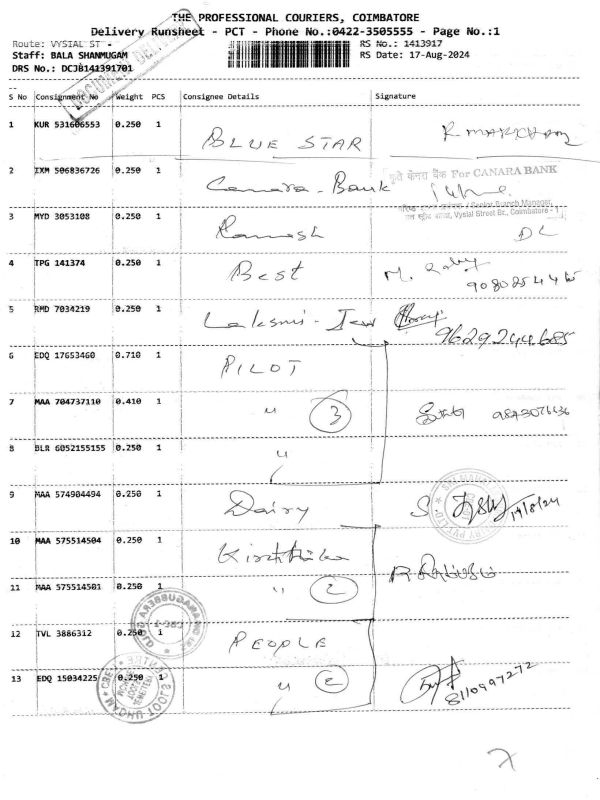 THE PROFESSIONAL COURIERS, COIMBATORE
Delivery Runsheet - PCT - Phone No.:0422-3505555 - Page No.:1
Route: VYSIAL ST - RS No.: 1413917
Staff: BALA SHANMUGAM RS Date: 17-Aug-2024
DRS No.: DCJB141391701
S No Consignment No Weight PCS Consignee Details Signature
1 KUR 531606553 0.250 1 BLUE STAR
2 IXM 506836726 0.250 1 Canara - Bank कृते केनरा बैंक For CANARA BANK
Senior Branch Manager
Vysial Street Br., Coimbatore - 1
3 MYD 3053108 0.250 1 Ramesh DL
4 TPG 141374 0.250 1 Best M.
5 RMD 7034219 0.250 1 Laksmi - Jew 9629244685
6 EDQ 17653460 0.710 1 PILOT
7 MAA 704737110 0.410 1 " 3
8 BLR 6052155155 0.250 1 "
9 MAA 574904494 0.250 1 Dairy S 17/8/24
10 MAA 575514504 0.250 1
11 MAA 575514501 0.250 1 " 2
12 TVL 3886312 0.250 1 PEOPLE
13 EDQ 15034225 0.250 1 " 2 8110997272